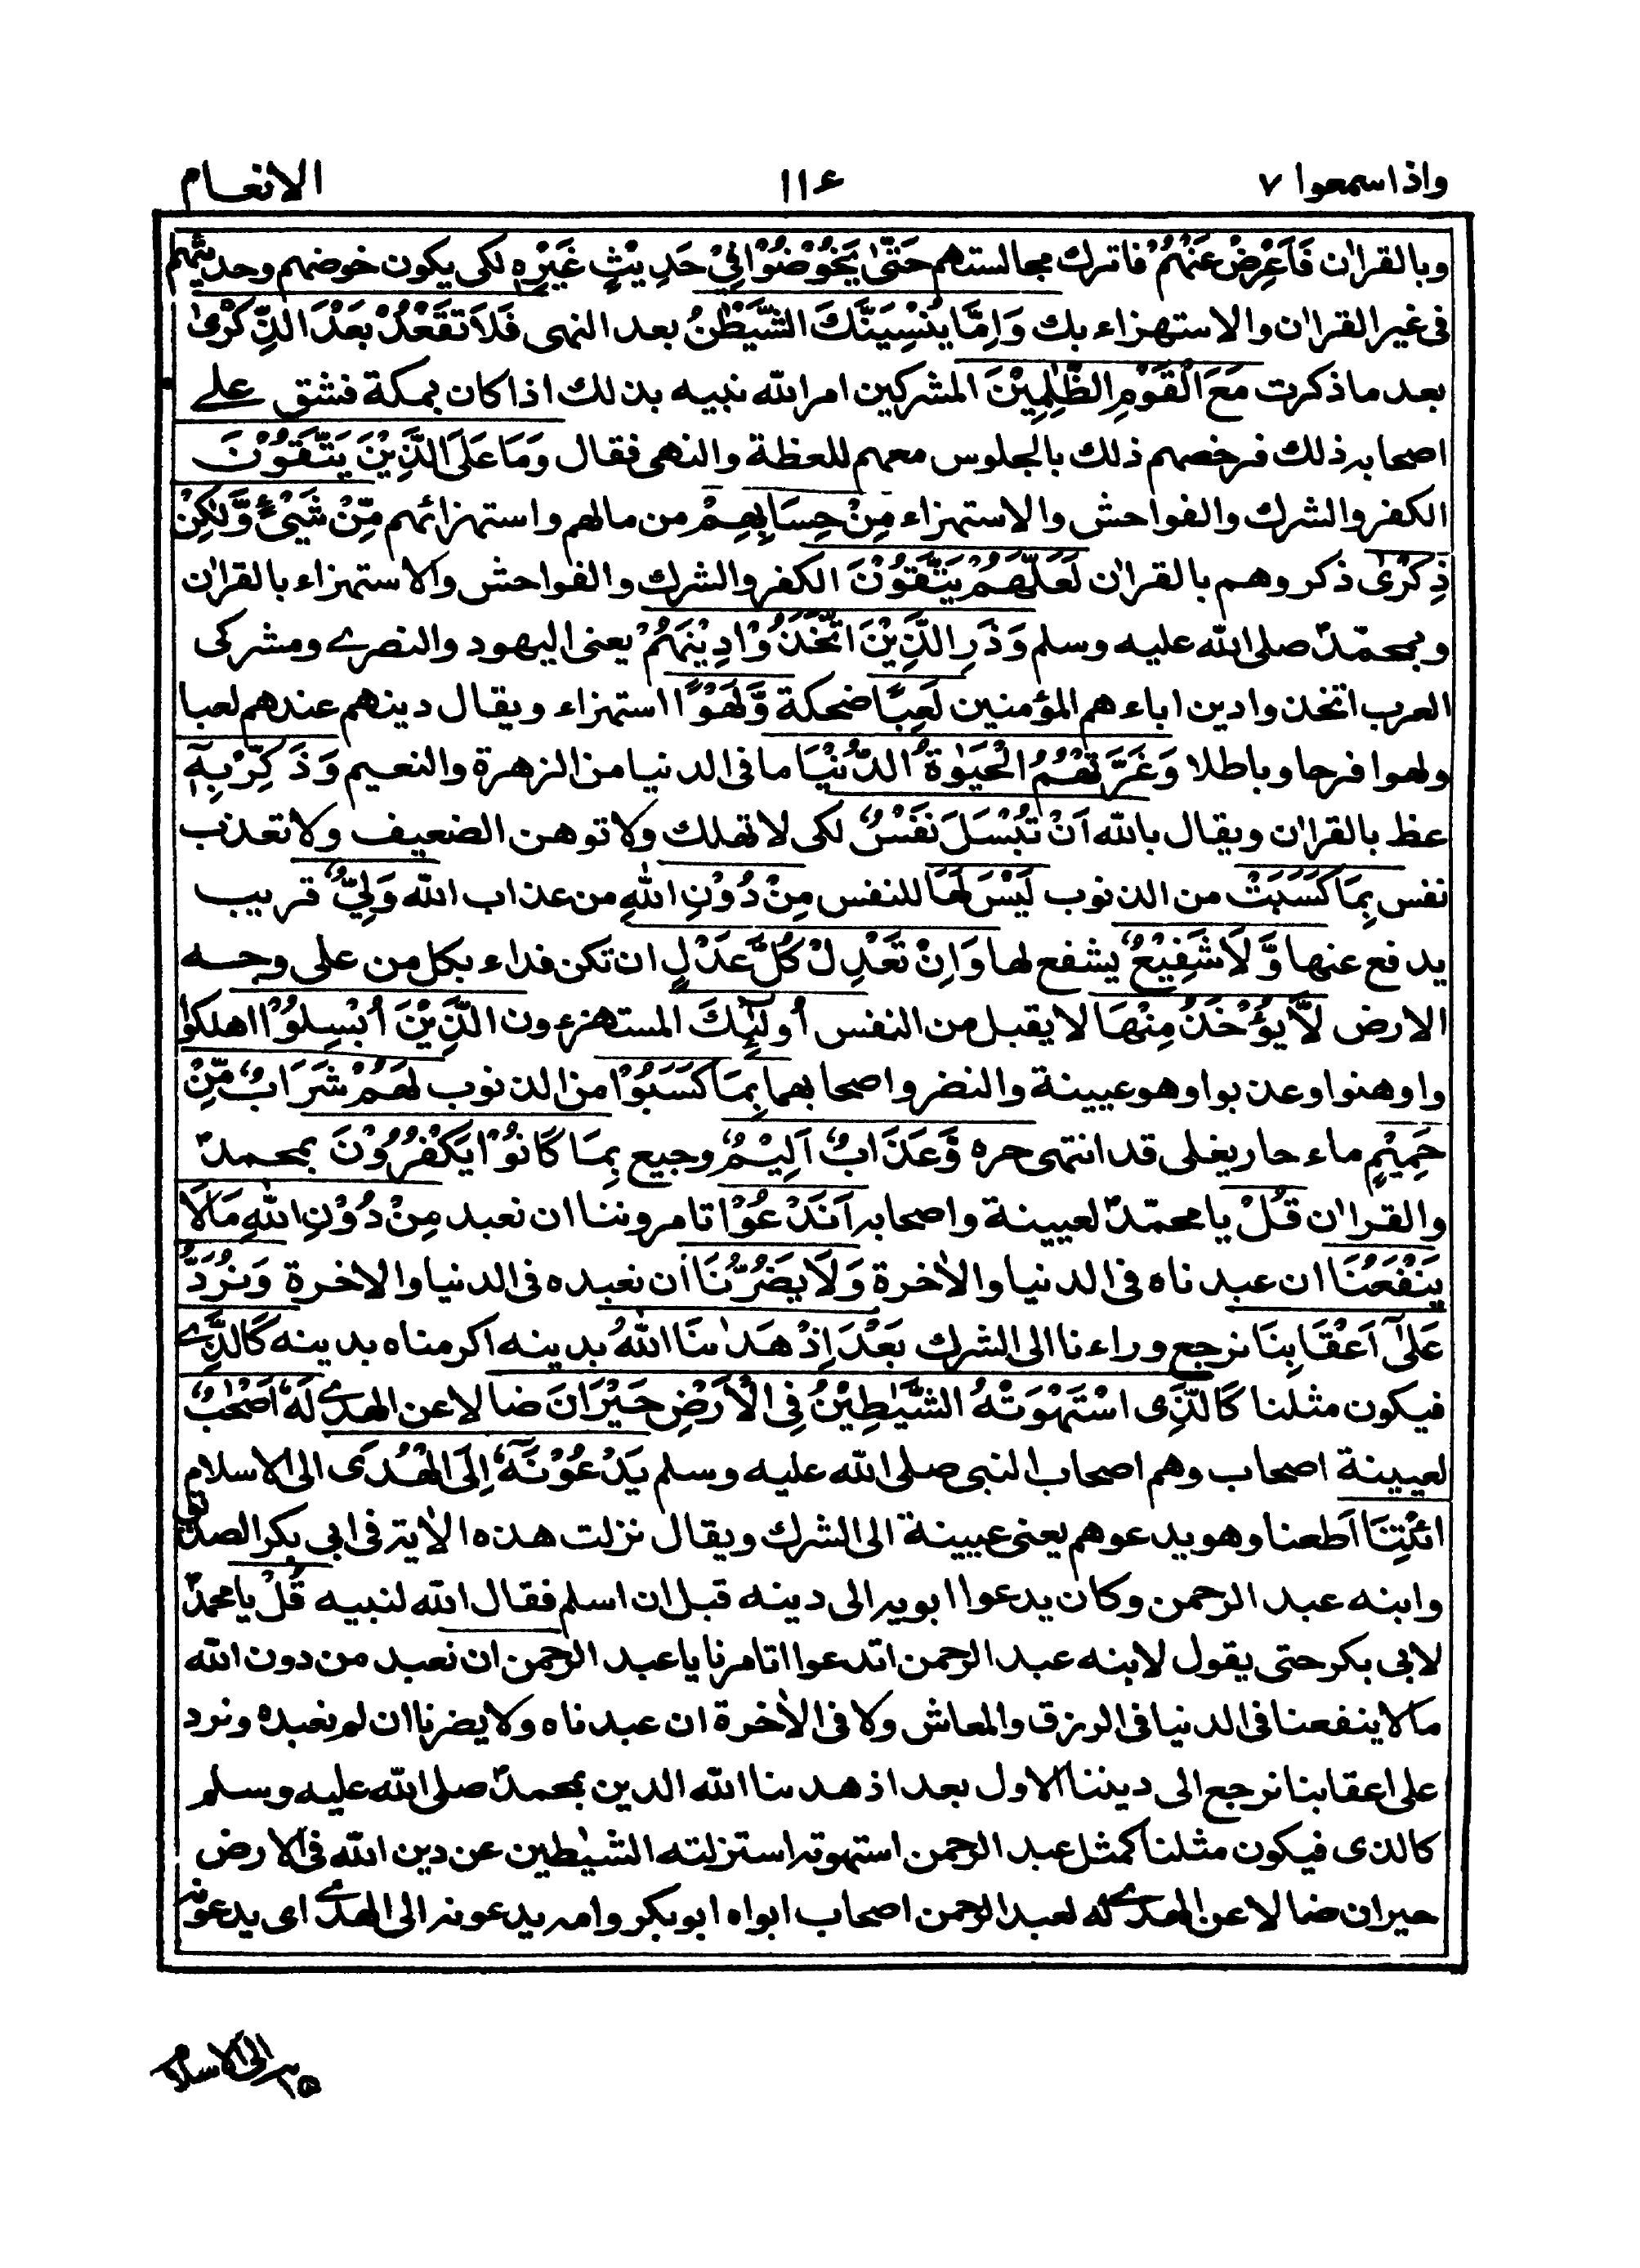 واذا سمعوا ٧
١١٤
الانعام
وبالقراٰن فَاَعْرِضْ عَنْهُمْ فاترك مجالستهم حَتّٰى يَخُوْضُوْا فِيْ حَدِيْثٍ غَيْرِهٖ لكى يكون خوضهم وحديثهم
فى غير القراٰن والاستهزاء بك وَاِمَّا يُنْسِيَنَّكَ الشَّيْطٰنُ بعد النهى فَلَا تَقْعُدْ بَعْدَ الذِّكْرٰى
بعد ما ذكرت مَعَ الْقَوْمِ الظّٰلِمِيْنَ المشركين امر الله نبيه بذلك اذا كان بمكة فشق على
اصحابه ذلك فرخصهم ذلك بالجلوس معهم للعظة والنهى فقال وَمَا عَلَى الَّذِيْنَ يَتَّقُوْنَ
الكفر والشرك والفواحش والاستهزاء مِنْ حِسَابِهِمْ من مالهم واستهزائهم مِّنْ شَيْءٍ وَّلٰكِنْ
ذِكْرٰى ذكروهم بالقراٰن لَعَلَّهُمْ يَتَّقُوْنَ الكفر والشرك والفواحش والاستهزاء بالقراٰن
وبمحمّد صلى الله عليه وسلم وَذَرِ الَّذِيْنَ اتَّخَذُوْا دِيْنَهُمْ يعنى اليهود والنصرے ومشركى
العرب اتخذوا دين اباءهم المؤمنين لَعِبًا ضحكة وَّلَهْوًا استهزاء ويقال دينهم عندهم لعبا
ولهوا فرحا وباطلا وَغَرَّتْهُمُ الْحَيٰوةُ الدُّنْيَا ما فى الدنيا من الزهرة والنعيم وَذَكِّرْ بِهٖٓ
عظ بالقراٰن ويقال بالله اَنْ تُبْسَلَ نَفْسٌ لكى لا تهلك ولا توهن الضعيف ولا تعذب
نفس بِمَا كَسَبَتْ من الذنوب لَيْسَ لَهَا للنفس مِنْ دُوْنِ اللهِ من عذاب الله وَلِيٌّ قريب
يدفع عنها وَّلَا شَفِيْعٌ يشفع لها وَاِنْ تَعْدِلْ كُلَّ عَدْلٍ ان تكن فداء بكل من على وجه
الارض لَّا يُؤْخَذْ مِنْهَا لا يقبل من النفس اُولٰٓئِكَ المستهزءون الَّذِيْنَ اُبْسِلُوْا اهلكوا
واوهنوا وعذبوا وهو عيينة والنضر واصحابهما بِمَا كَسَبُوْا من الذنوب لَهُمْ شَرَابٌ مِّنْ
حَمِيْمٍ ماء حار يغلى قد انتهى حره وَّعَذَابٌ اَلِيْمٌ وجيع بِمَا كَانُوْا يَكْفُرُوْنَ بمحمد
والقراٰن قُلْ يا محمّد لعيينة واصحابه اَنَدْعُوْا تامروننا ان نعبد مِنْ دُوْنِ اللهِ مَا لَا
يَنْفَعُنَا ان عبدناه فى الدنيا والاٰخرة وَلَا يَضُرُّنَا ان نعبده فى الدنيا والاخرة وَنُرَدُّ
عَلٰٓى اَعْقَابِنَا نرجع وراءنا الى الشرك بَعْدَ اِذْ هَدٰىنَا اللهُ بدينه اكرمناه بدينه كَالَّذِے
فيكون مثلنا كَالَّذِى اسْتَهْوَتْهُ الشَّيٰطِيْنُ فِى الْاَرْضِ حَيْرَانَ ضالا عن الهدے لَهٗٓ اَصْحٰبٌ
لعيينة اصحاب وهم اصحاب النبى صلى الله عليه وسلم يَدْعُوْنَهٗٓ اِلَى الْهُدَى الى الاسلام
ائْتِنَا اطعنا وهو يدعوهم يعنى عيينة الى الشرك ويقال نزلت هذه الاٰية فى ابى بكر الصديق
وابنه عبد الرحمن وكان يدعوا ابويه الى دينه قبل ان اسلم فقال الله لنبيه قُلْ يا محمد
لابى بكر حتى يقول لابنه عبد الرحمن اتدعوا اتامرنا يا عبد الرحمن ان نعبد من دون الله
مالا ينفعنا فى الدنيا فى الرزق والمعاش ولا فى الاٰخرة ان عبدناه ولا يضرنا ان لم نعبده ونرد
على اعقابنا نرجع الى ديننا الاول بعد اذ هدىنا الله الدين بمحمد صلى الله عليه وسلم
كالذى فيكون مثلنا كمثل عبد الرحمن استهوته استزلته الشيٰطين عن دين الله فى الارض
حيران ضالا عن الهدے له لعبد الرحمن اصحاب ابواه ابوبكر وامه يدعونه الى الهدے اى يدعونه
الى الاسلام